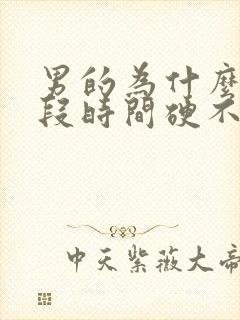 男的為什麼
段時間硬不
中天紫薇大帝